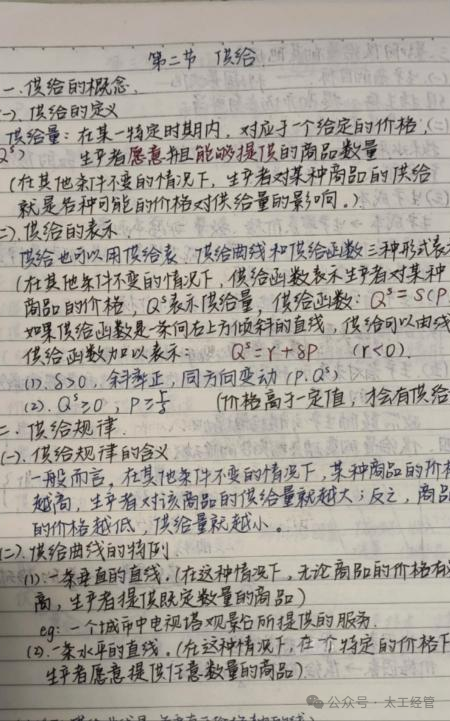 第二节 供给
一.供给的概念.
(一).供给的定义
供给量：在某一特定时期内，对应于一个给定的价格，
Qˢ) 生产者愿意并且能够提供的商品数量
(在其他条件不变的情况下，生产者对某种商品的供给
就是各种可能的价格对供给量的影响。)
(二).供给的表示.
供给也可以用供给表、供给曲线和供给函数三种形式表
(在其他条件不变的情况下，供给函数表示生产者对某种
商品的价格，Qˢ表示供给量，供给函数：Qˢ=S(P
如果供给函数是一条向右上方倾斜的直线，供给可以由线
供给函数加以表示： Qˢ=γ+δP (γ<0).
(1).δ>0，斜率正，同方向变动(P.Qˢ)
(2).Qˢ≥0，P≥ (价格高于一定值，才会有供给
二.供给规律.
(一).供给规律的含义
一般而言，在其他条件不变的情况下，某种商品的价
越高，生产者对该商品的供给量就越大；反之，商品
的价格越低，供给量就越小。
(二).供给曲线的特例
(1).一条垂直的直线.(在这种情况下，无论商品的价格有
高，生产者提供既定数量的商品)
eg：一个城市中电视塔观景台所提供的服务.
(2).一条水平的直线。(在这种情况下，在一个特定的价格下
生产者愿意提供任意数量的商品)
公众号·太工经管